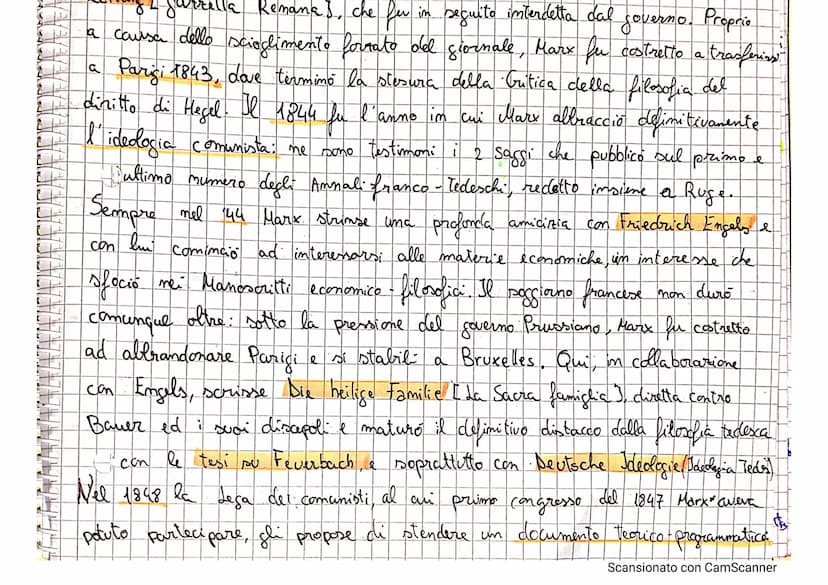 Gazzetta Renana], che fu in seguito interdetta dal governo. Proprio
a causa dello scioglimento forzato del giornale, Marx fu costretto a trasferirsi
a Parigi 1843, dove terminò la stesura della Critica della filosofia del
diritto di Hegel. Il 1844 fu l'anno in cui Marx abbracciò definitivamente
l'ideologia comunista: ne sono testimoni i 2 saggi che pubblicò sul primo e
ultimo numero degli Annali franco-Tedeschi, redatto insieme a Ruge.
Sempre nel '44 Marx strinse una profonda amicizia con Friedrich Engels e
con lui cominciò ad interessarsi alle materie economiche, un interesse che
sfociò nei Manoscritti economico-filosofici. Il soggiorno francese non durò
comunque oltre: sotto la pressione del governo Prussiano, Marx fu costretto
ad abbandonare Parigi e si stabilì a Bruxelles. Qui, in collaborazione
con Engels, scrisse Die heilige Familie [La Sacra famiglia], diretta contro
Bauer ed i suoi discepoli e maturò il definitivo distacco dalla filosofia tedesca
con le tesi su Feuerbach, e soprattutto con Deutsche Ideologie (Ideologia Ted.)
Nel 1848 la Lega dei comunisti, al cui primo congresso del 1847 Marx aveva
potuto partecipare, gli propose di stendere un documento teorico-programmatico
Scansionato con CamScanner